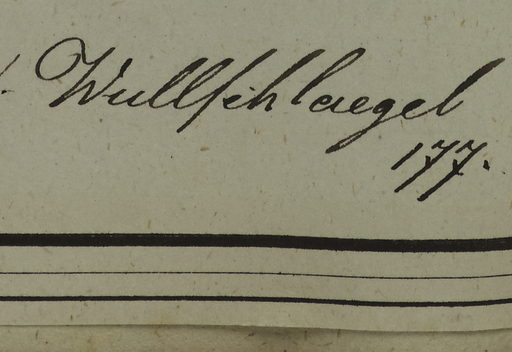 Wullschlaegel
177.